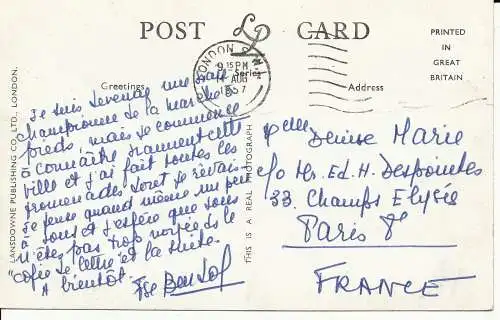 POST CARD
LP
Series
PRINTED
IN
GREAT
BRITAIN
Greetings
Address
LONDON S.W.1
9 15 PM
AUG
1957
LANSDOWNE PUBLISHING CO., LTD., LONDON.
THIS IS A REAL PHOTOGRAPH
Je suis devenue une vraie
championne de la marche à
pieds, mais je commence
à connaître vraiment cette
ville et j'ai fait toutes les
promenades dont je rêvais.
Je pense quand même un peu
à vous et j'espère que vous
n'êtes pas trop noyés de
"copie de lettre et la suite.
A bientôt.
Melle Denise Marie
c/o Mr. Ed. H. Despointes
33 Champs Elysée
Paris
FRANCE